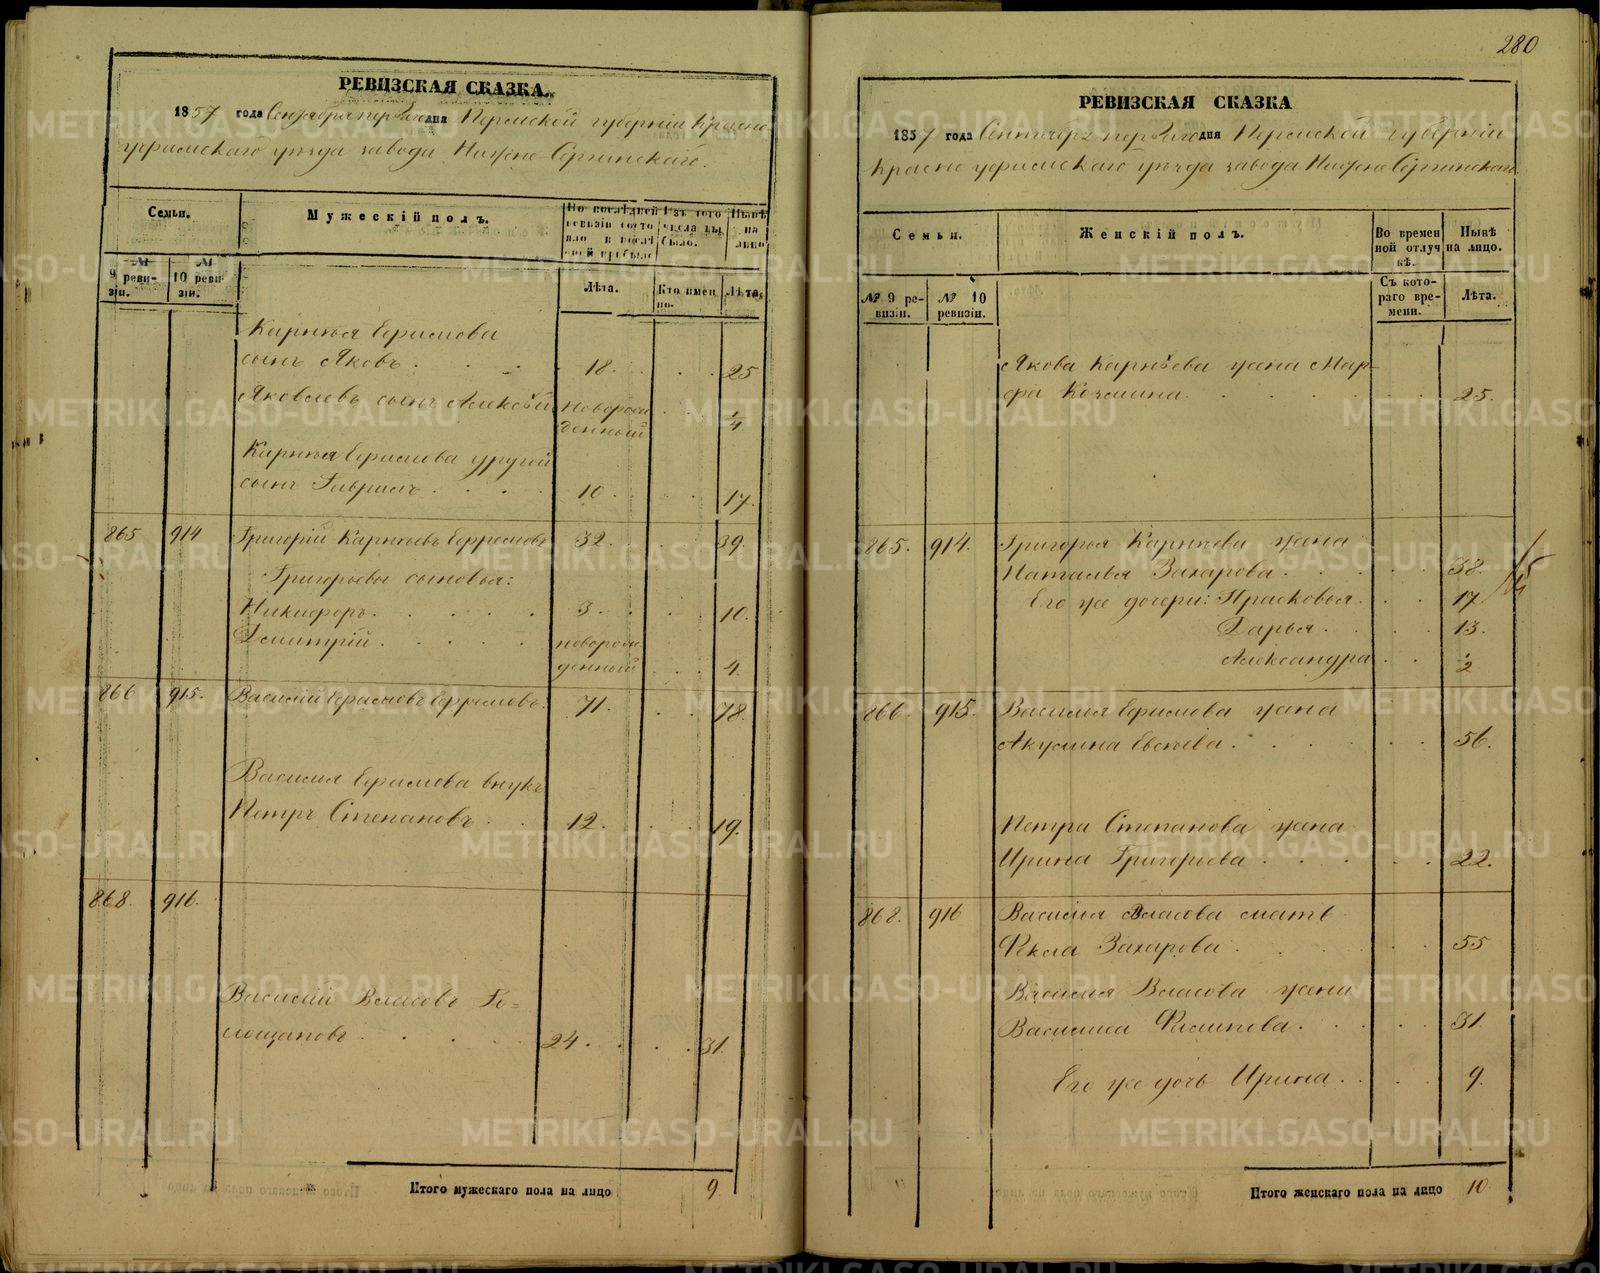 РЕВИЗСКАЯ СКАЗКА.
1857 года Сентября перваго дня Пермской губерніи Красно
уфимскаго уѣзда завода Нижне-Сергинскаго.
Семьи.
Мужескій полъ.
По послѣдней ревизіи состояло и послѣ оной прибыло
Изъ того числа выбыло.
Нынѣ на лицо
№ 9 ревизіи.
№ 10 ревизіи.
Лѣта.
Кто именно.
Лѣта.
Карпѣя Ерасмова
сынъ Яковъ. 18. 25
Яковлевъ сынъ Алексѣй новорож
денный 1/4
Карпѣя Ерасмова другой
сынъ Гаврилъ. 10. 17.
865 914 Григорій Карпѣевъ 32. 39.
Григорьевы сыновья:
Никифоръ. 3. 10.
Дмитрій. новорож
денный 4.
866 915. Василій Ерасмовъ 71. 78.
Василья Ерасмова внукъ
Петръ Степановъ. 12. 19.
868. 916.
Василій Власовъ Го-
лощаповъ 24. 31.
Итого мужескаго пола на лицо 9.
280
РЕВИЗСКАЯ СКАЗКА
1857 года Сентября перваго дня Пермской губерніи
Красноуфимскаго уѣзда завода Нижне Сергинскаго
Семьи.
Женскій полъ.
Во временной отлучкѣ.
Нынѣ на лицо.
№ 9 ревизіи.
№ 10 ревизіи.
Съ котораго времени.
Лѣта.
Якова Карпѣева жена Мар-
фа Козмина. 25.
865. 914. Григорья Карпѣева жена
Наталья Захарова. 38.
Его же дочери: Прасковья. 17.
Дарья. 13.
Александра 1/2
866. 915. Василья Ерасмова жена
Акулина Евсѣева. 56.
Петра Степанова жена
Ирина Григорьева. 22.
868. 916 Василья Власова мать
Фекла Захарова. 55
Василья Власова жена
Василиса Филипова. 31.
Его же дочь Ирина. 9.
Итого женскаго пола на лицо 10
METRIKI.GASO-URAL.RU